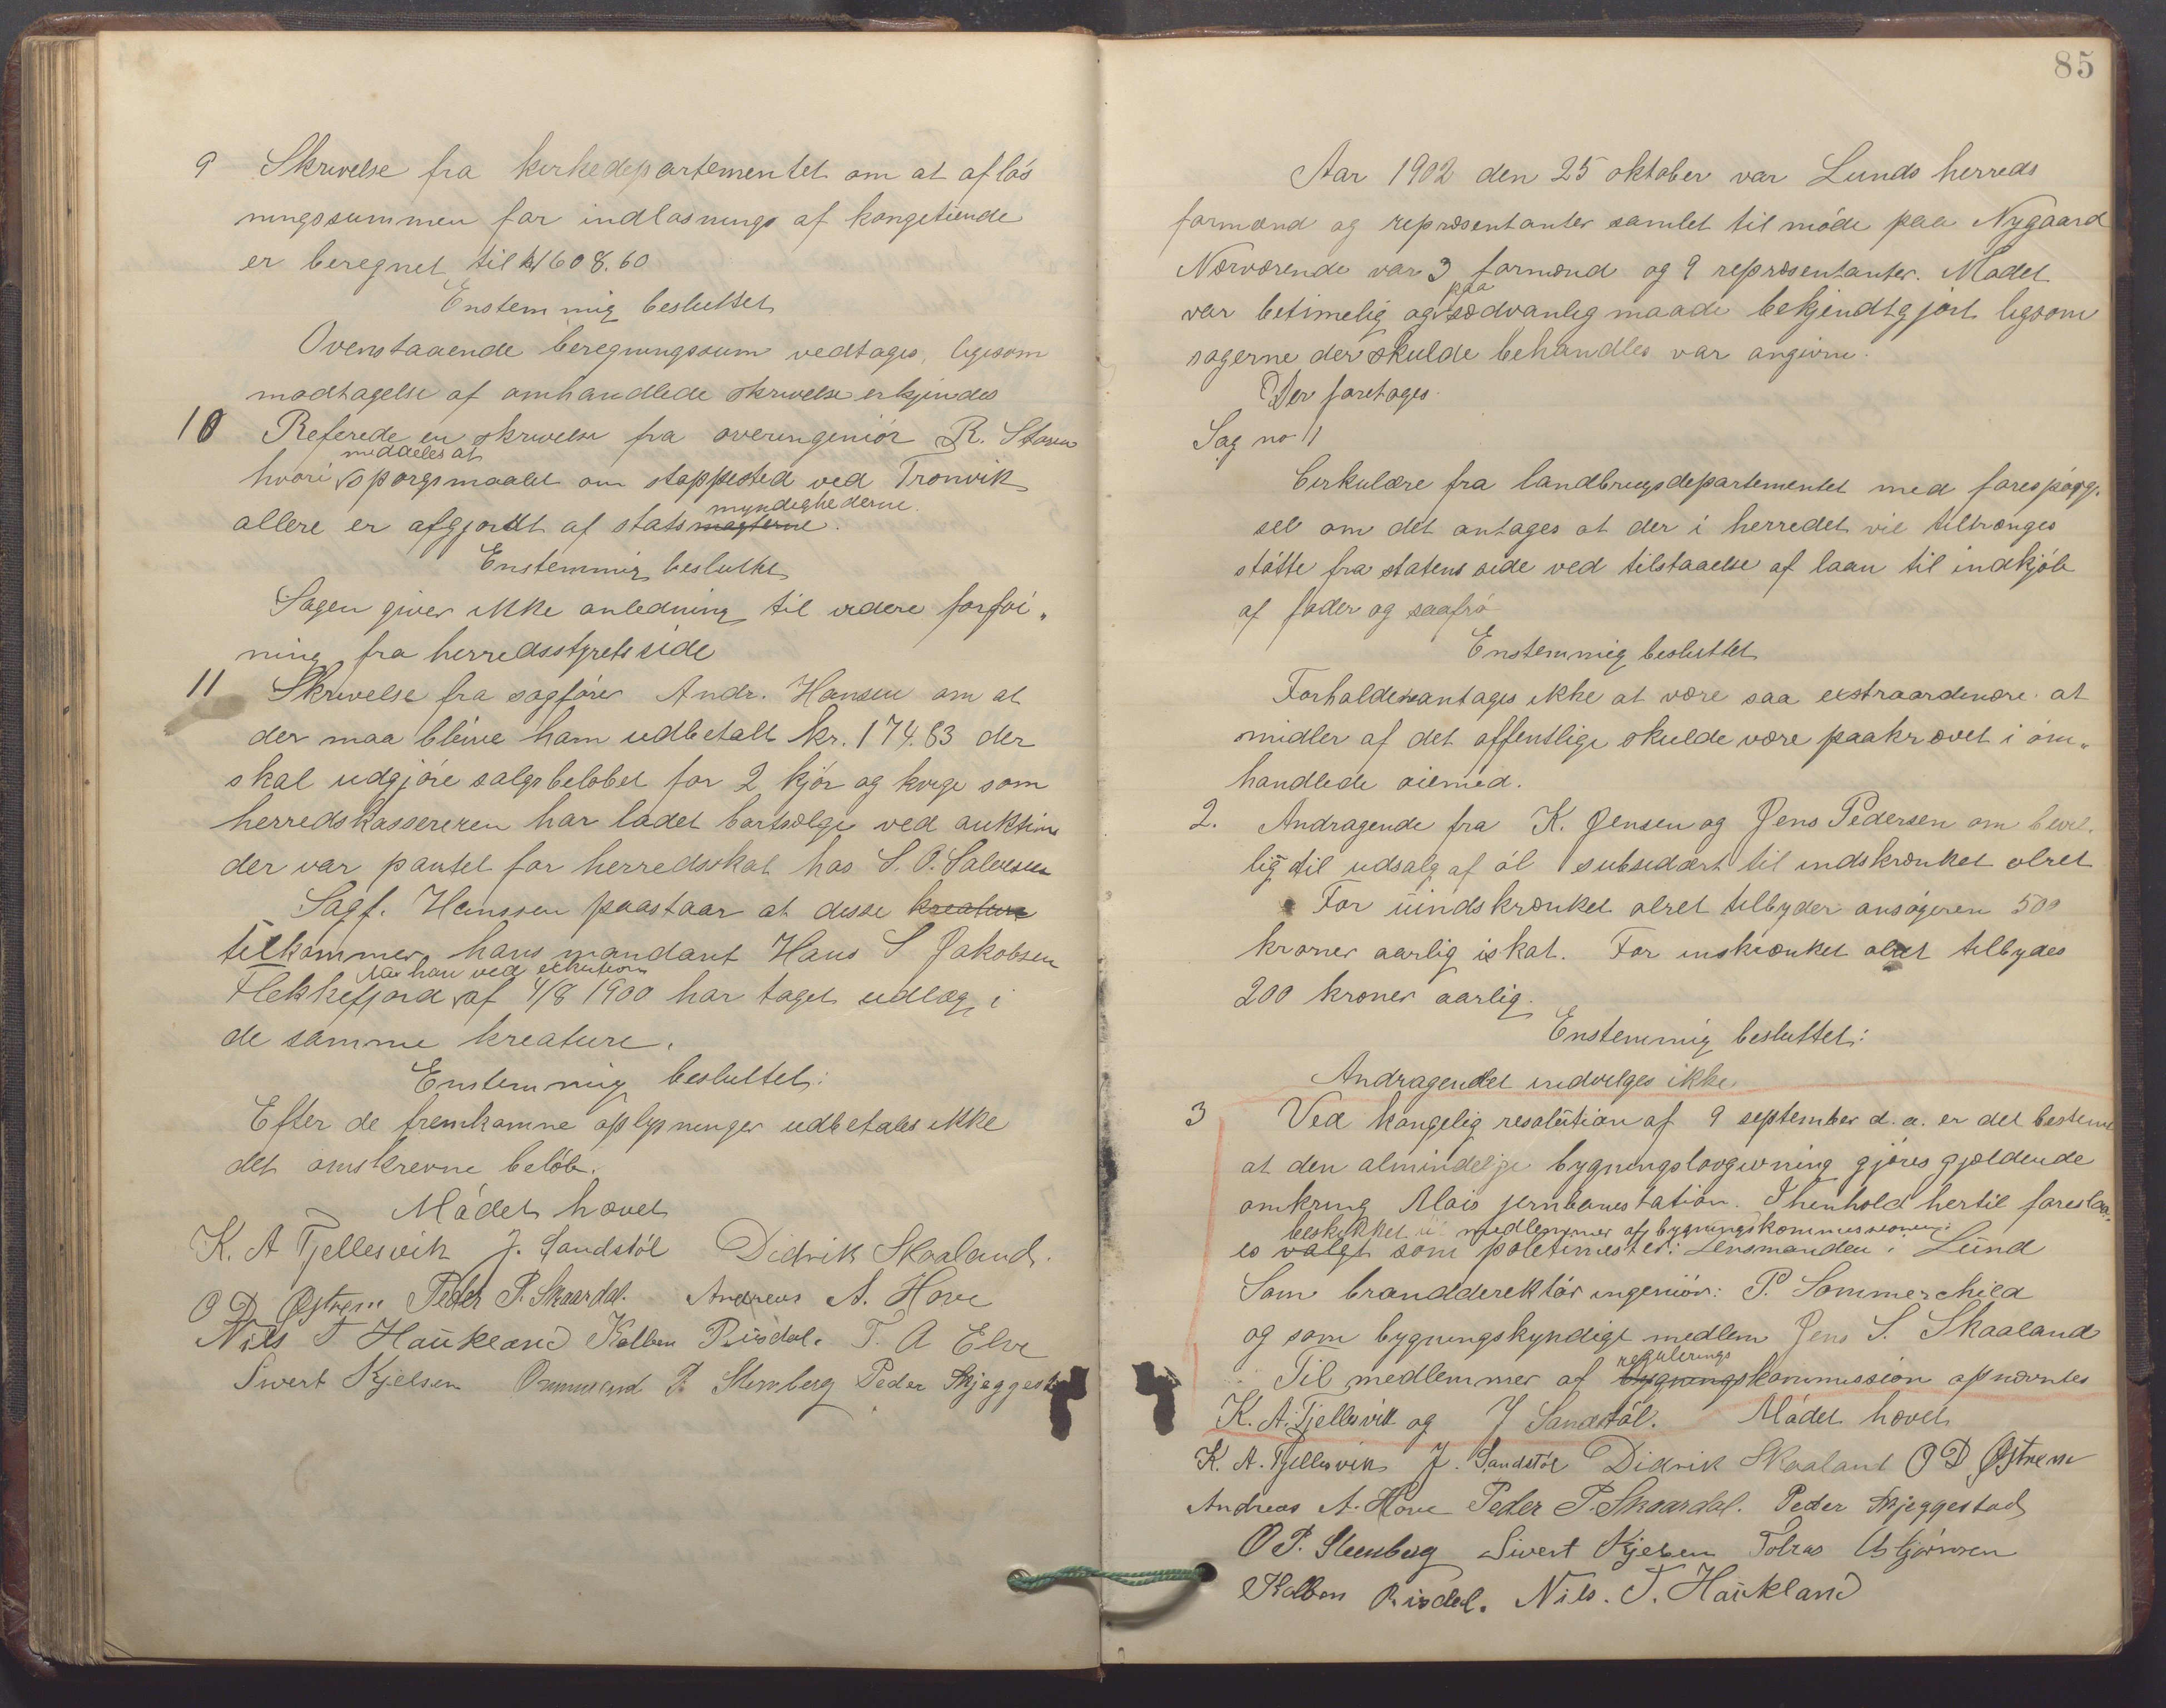 9 Skrivelse fra kirkedepartementet om at afløs
ningssummen for indløsnings af kongetiende
er beregnet til kr 1608.60
Enstemmig besluttet
Ovenstaaende beregningssum vedtages, ligesom
modtagelse af omhandlede skrivelse erkjendes
10 Referede en skrivelse fra overingeniør R. Støren
meddeles at
hvori spørgsmaalet om stoppested ved Tronvik
myndighederne.
allere er afgjordt af statsmagterne.
Enstemmig besluttet
Sagen giver ikke anledning til videre forføi„
ning fra herredsstyrets side
11 Skrivelse fra sagfører Andr. Hansen om at
der maa blive ham udbetalt kr. 174.83 der
skal udgjøre salgsbeløbet for 2 kjør og kvige som
herredskassereren har ladet bortsælge ved auktion
der var pantet for herredsskat hos S. O. Salvesen
Sagf. Hanssen paastaar at disse kreature
tilkommer hans mandant Hans S Jakobsen
da han ved exkution
Flekkefjord af 4/8 1900 har taget udlæg i
de samme kreature.
Enstemmig besluttet:
Efter de fremkomne oplysninger udbetales ikke
det omskrevne beløb.
Mødet hævet
K. A Tjellesvik J. Sandstøl Didrik Skaaland.
O D Østrem Peder P. Skaardal. Andreas A. Hove
Nils T Haukland Kolben Risdal. T. A Elve
Sivert Kjelsen Ommund P. Stenberg Peder Skjeggestad
85
Aar 1902 den 25 oktober var Lunds herreds
formænd og repræsentanter samlet til møde paa Nygaard
Nærværende var 3 formænd og 9 repræsentanter. Mødet
paa
var betimelig og sædvanlig maade bekjendtgjort ligsom
sagerne der skulde behandles var angivne.
Der foretoges
Sag no 1
Cirkulære fra landbrugsdepartementet med forespørg„
sel om det antages at der i herredet vil tiltrænges
støtte fra statens side ved tilstaaelse af laan til indkjøb
af foder og saafrø
Enstemmig besluttet
Forholdene antages ikke at være saa exstraordinære at
midler af det offentlige skulde være paakrævet i om„
handlede øiemed.
2. Andragende fra K. Jensen og Jens Pedersen om bevil„
lig til udsalg af øl subsidært til indskrænket ølret
For uindskrænket ølret tilbyder ansøgeren 500
kroner aarlig i skat. For inskrænket ølret tilbydes
200 kroner aarlig.
Enstemmig besluttet:
Andragendet indvilges ikke
3 Ved kongelig resolution af 9 september d. a. er det bestemt
at den almindelige bygningslovgivning gjøres gjældende
omkring Mois jernbanestation. I henhold hertil foreslaa„
beskikket til medlemmer af bygningskommissionen:
es valgt som politimester: Lensmanden i Lund
Som branddirektør ingeniør: P. Sommerchild
og som bygningskyndige medlem Jens S. Skaaland
regulerings
Til medlemmer af bygningskommission opnævntes
K. A. Tjellesvik og J Sandstøl. Mødet hævet
K. A. Tjellesvik J. Sandstøl Didrik Skaaland O D Østrem
Andreas A. Hove Peder P. Skaardal. Peder Skjeggestad
O P. Steenberg Sivert Kjelsen Tobias Asbjørnsen
Kolben Risdal. Nils. T. Haukland